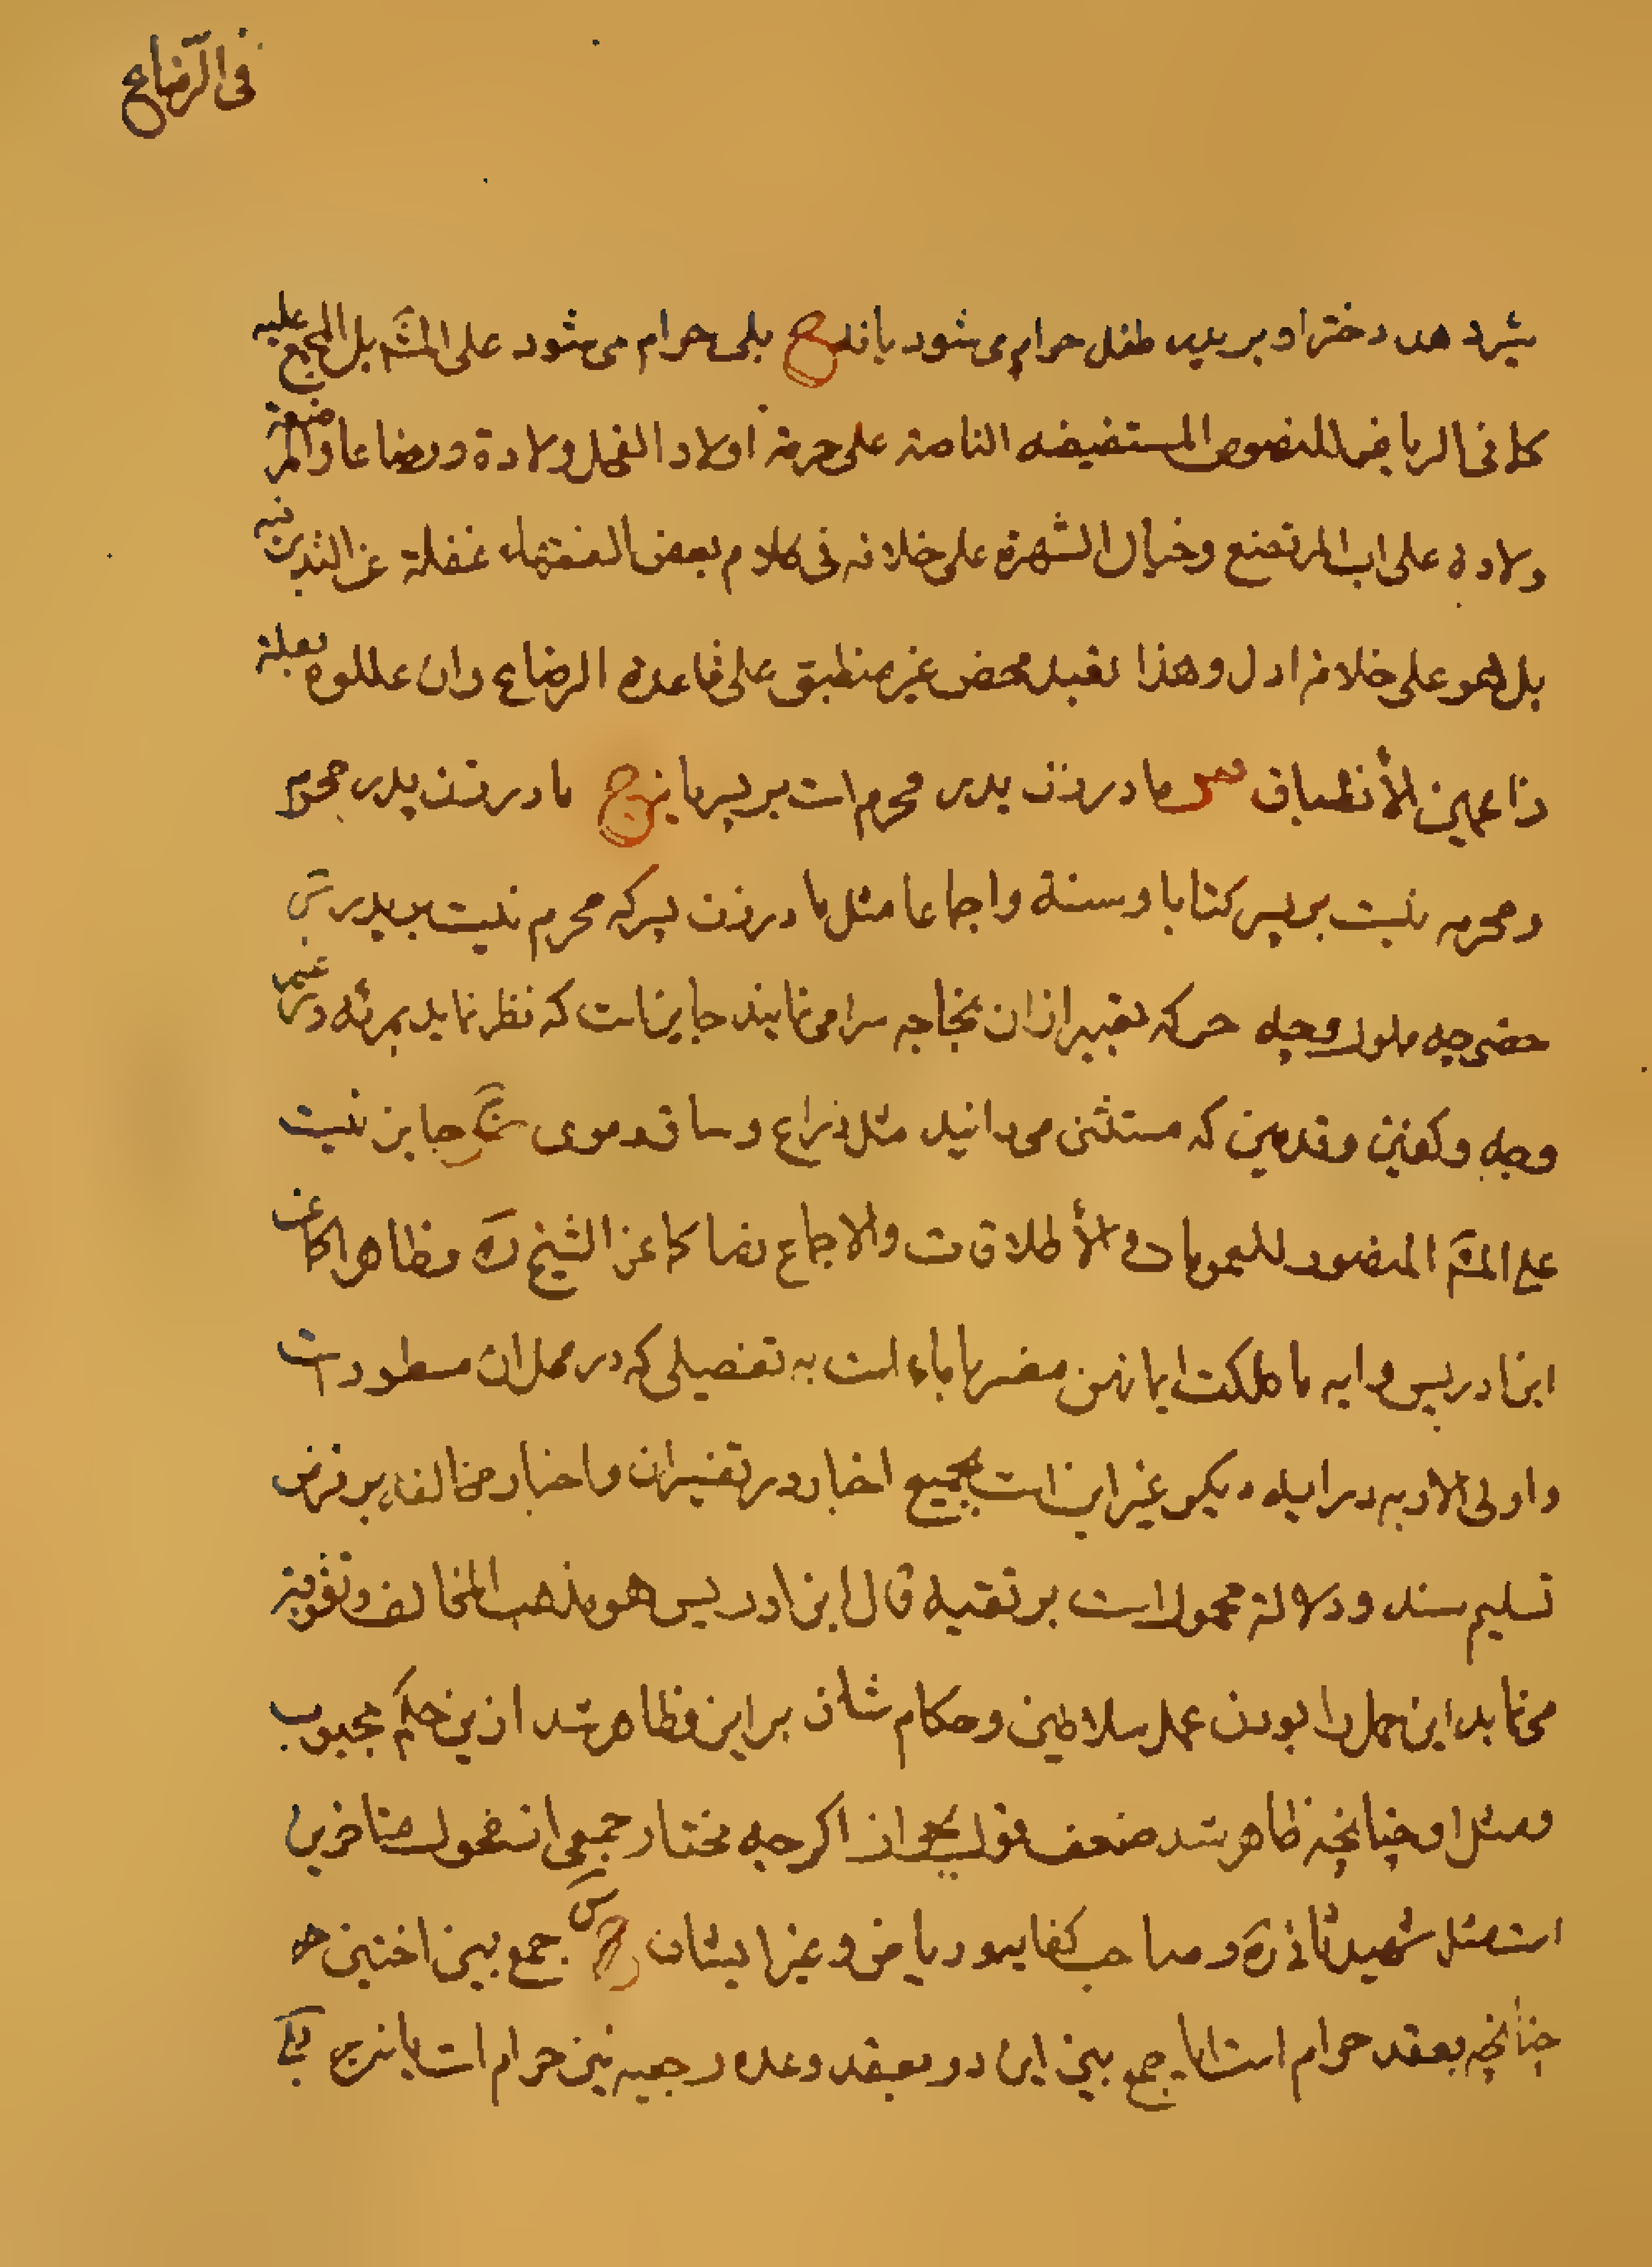 فی الرّضاع
شیر دهد دختر او بر پدر طفل حرام می شود یا نه ج بلی حرام می شود علی المشهَ بل المجمع علیه
کما فی الریاض للنصوص المستفیضه الناصة علی حرمة اولاد الفحل ولادة و رضاعا و المرضعة
ولادة علی اب المرتضع و خیال الشهرة علی خلافه فی کلام بعض الفقهاء غفلة عن التدبر فیه
بل هو علی خلافه ادل و هذا تعبد محض غیر منطبق علی قاعدة الرضاع وان عللوه بعلة
زاعمین الأنطباق س مادر زن پدر محرم است بر پسر یا نه ج مادر زن پدر محرم
و محرمه نیست بر پسر کتابا و سنة و اجماعا مثل مادر زن پسر که محرم نیست بر پدر س
خصی چه مملوک و چه حر که تعبیر از ان بخاجه سرا می نمایند جایز است که نظر نماید بمرئه در غیر
وجه و کفین و قدمین که مستثنی می دانید مثل ذراع و ساق و موی ج جایز نیست
علی المشهَ المنصور للعمومات و الأطلاقات و الاجماع نصا کما عن الشیخ رَه و ظاهرا کما عن
ابن ادریس و ایه ما ملکت ایمانهن مفسر باماء است به تفصیلی که در محل ان مسطور است
و اولی الاربه در ایه دیگر غیر این است بجمیع اخبار در تفسیر ان و اخبار مخالفه بر فرض
تسلیم سند و دلالة محمول است بر تقیه قال ابن ادریس هو مذهب المخالف و تقویة
می نماید این حمل را بودن عمل سلاطین و حکام شان بر این و ظاهر شد ازین حکم مجبوب
و مثل او چنانچه ظاهر شد ضعف قول بجواز اگرچه مختار جمعی از فحول متاخرین
است مثل شهید ثانی رَه و صاحب کفایه و ریاض و غیر ایشان س جمع بین اختین
چنانچه بعقد حرام است ایا جمع بین این دو بعقد و عده رجعیه نیز حرام است یا نه ج بلی